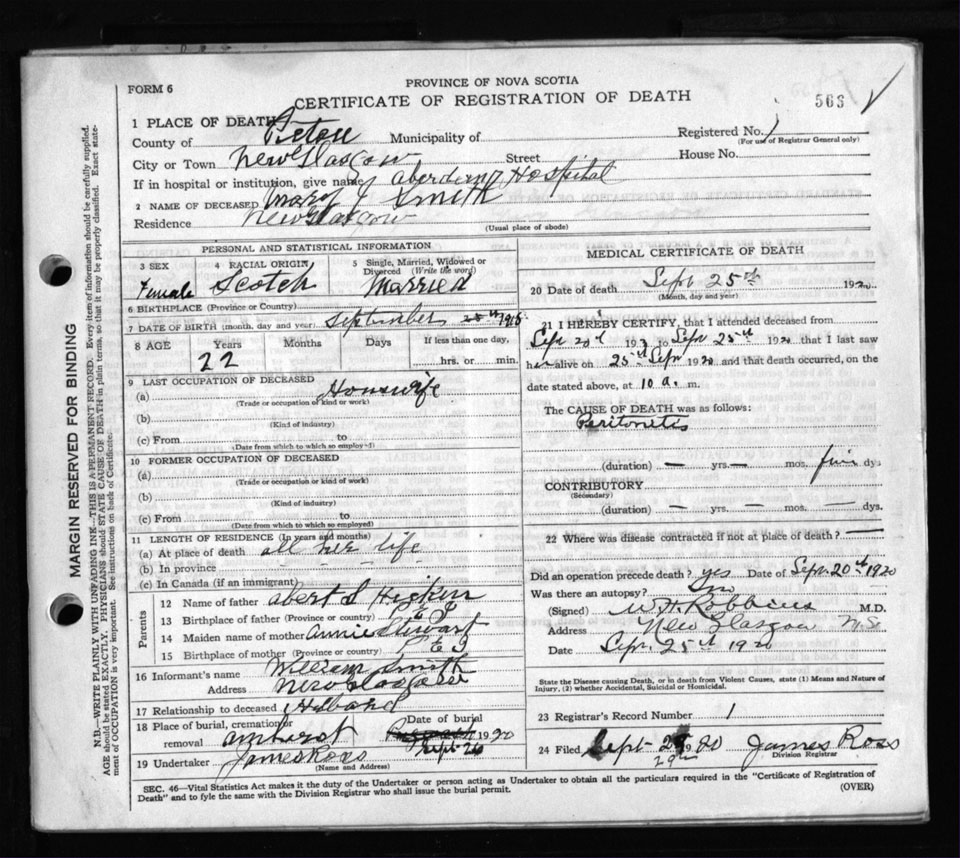 PROVINCE OF NOVA SCOTIA
FORM 6
CERTIFICATE OF REGISTRATION OF DEATH
563
1 PLACE OF DEATH
County of Pictou Municipality of
Registered No. 1
(For use of Registrar General only)
City or Town New Glasgow Street House No.
If in hospital or institution, give name Aberdeen Hospital
2 NAME OF DECEASED Mary J Smith
Residence New Glasgow
(Usual place of abode)
PERSONAL AND STATISTICAL INFORMATION
3 SEX Female
4 RACIAL ORIGIN Scotch
5 Single, Married, Widowed or Divorced (Write the word) Married
6 BIRTHPLACE (Province or Country)
7 DATE OF BIRTH (month, day and year) September
8 AGE Years Months Days If less than one day,
22 hrs. or min.
9 LAST OCCUPATION OF DECEASED
(a) Housewife
(Trade or occupation or kind of work)
(b)
(Kind of industry)
(c) From to
(Date from which to which so employed)
10 FORMER OCCUPATION OF DECEASED
(a)
(Trade or occupation or kind of work)
(b)
(Kind of industry)
(c) From to
(Date from which to which so employed)
11 LENGTH OF RESIDENCE (In years and months)
(a) At place of death all her life
(b) In province
(c) In Canada (if an immigrant)
Parents
12 Name of father abert S
13 Birthplace of father (Province or country) P E I
14 Maiden name of mother Annie Stewart
15 Birthplace of mother (Province or country) P E I
16 Informant's name William Smith
Address New Glasgow
17 Relationship to deceased Husband
18 Place of burial, cremation or removal Amherst
Date of burial Sept 26 1920
19 Undertaker James Ross
(Name and Address)
MEDICAL CERTIFICATE OF DEATH
20 Date of death Sept 25th 1920
(Month, day and year)
21 I HEREBY CERTIFY, that I attended deceased from
Sep 20th 192 to Sep 25th 1920 that I last saw
her alive on 25th Sep 1920 and that death occurred, on the
date stated above, at 10 a. m.
The CAUSE OF DEATH was as follows:
Peritonetis
(duration) — yrs. — mos. five dys
CONTRIBUTORY
(Secondary)
(duration) — yrs. — mos. — dys.
22 Where was disease contracted if not at place of death? —
Did an operation precede death? yes Date of Sept. 20th 1920
Was there an autopsy? no
(Signed) W. H. Robbins M.D.
Address New Glasgow N.S.
Date Sep. 25th 1920
State the Disease causing Death, or in death from Violent Causes, state (1) Means and Nature of
Injury, (2) whether Accidental, Suicidal or Homicidal.
23 Registrar's Record Number 1
24 Filed Sept- 1920 James Ross
29th
Division Registrar
SEC. 46—Vital Statistics Act makes it the duty of the Undertaker or person acting as Undertaker to obtain all the particulars required in the "Certificate of Registration of
Death" and to fyle the same with the Division Registrar who shall issue the burial permit.
(OVER)
MARGIN RESERVED FOR BINDING
N.B.—WRITE PLAINLY WITH UNFADING INK—THIS IS A PERMANENT RECORD. Every item of information should be carefully supplied.
AGE should be stated EXACTLY. PHYSICIANS should STATE CAUSE OF DEATH in plain terms, so that it may be properly classified. Exact state-
ment of OCCUPATION is very important. See instructions on back of Certificate.